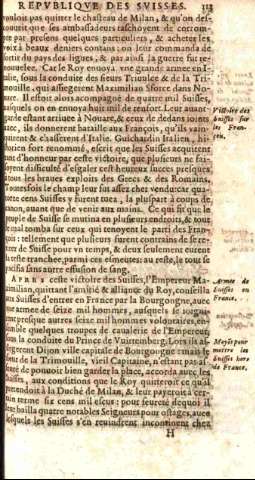 REPVBLIQVE DES SVISSES. 113
vouloit pas quitter le chasteau de Milan, & qu'on des-
couurit que ses ambassadeurs taschoyent de corrom-
pre par presens quelques particuliers, & acheter les
voix à beaux deniers contans: on leur commanda de
sortir du pays des ligues, & par ainsi la guerre fut re-
nouuelee. Car le Roy enuoya vne grande armee en I-
talie, sous la conduite des sieurs Triuulce & de la Tri-
mouille, qui assiegerent Maximilian Sforce dans No-
uarre. Il estoit alors accompagné de quatre mil Suisses,
ausquels on en enuoya huit mil de renfort. Leur auant-
garde estant arriuee à Nouare, & ceux de dedans ioints
auec, ils donnerent bataille aux François, qu'ils vain-
quirent & chasserent d'Italie. Guichardin Italien, hi-
storien fort renommé, escrit que les Suisses acquirent
tant d'honneur par ceste victoire, que plusieurs ne fai-
soyent difficulté d'egaler cest heureux succes presques
à tous les braues exploits des Grecs & des Romains.
Toutesfois le champ leur fut assez cher vendu: car qua-
torze cens Suisses y furent tuez, la pluspart à coups de
canon, auant que de venir aux mains. Ce qui fit que le
peuple de Suisse se mutina en plusieurs endroits, & tout
le mal tomba sur ceux qui tenoyent le parti des Fran-
çois: tellement que plusieurs furent contrains de se re-
tirer de Suisse pour vn temps, & deux seulement eurent
la teste tranchee, parmi ces esmeutes: au reste, le tout se
pacifia sans autre effusion de sang.
Victoire des
Suisses sur
les Fran-
çois.
APRES ceste victoire des Suisses, l'Empereur Ma-
ximilian, quittant l'amitié & alliance du Roy, conseilla
aux Suisses d'entrer en France par la Bourgongne, auec
vne armee de seize mil hommes, ausquels se ioigni-
rent presque autres seize mil hommes volontaires, en-
semble quelques troupes de caualerie de l'Empereur,
sous la conduite du Prince de Vuirtemberg. Lors ils as-
siegerent Dijon ville capitale de Bourgongne: mais le
sieur de la Trimouille, vieil Capitaine, n'estant pas as-
seuré de pouuoir bien garder la place, accorda auec les
Suisses, aux conditions que le Roy quitteroit ce qu'il
pretendoit à la Duché de Milan, & leur payeroit à cer-
tain terme six cens mil escus: pour seureté dequoi il
leur bailla quatre notables Seigneurs pour ostages, auec
lesquels les Suisses s'en reuindrent incontinent chez
Armee de
Suisses en
France.
Moyës pour
mettre les
Suisses hors
de France.
H